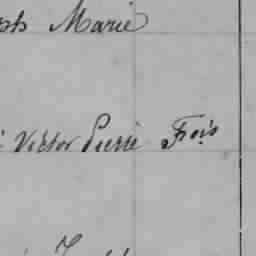 Marie
Victor Pierre Frois